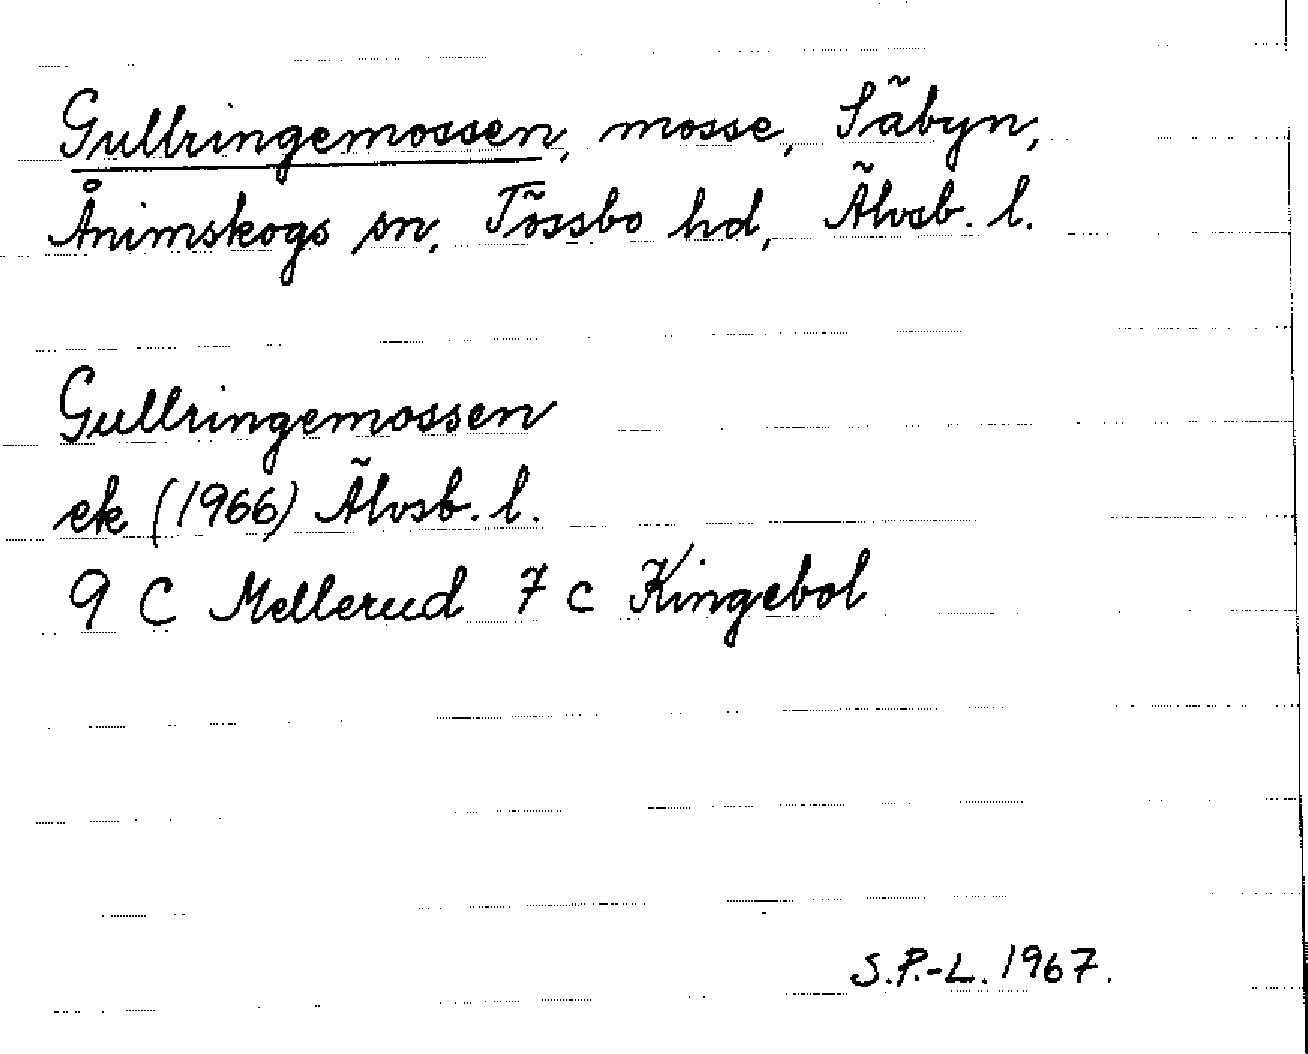 Gullringemossen, mosse, Säbyn,
Ånimskogs sn, Tössbo hd, Älvsb. l.
Gullringemossen
ek (1966) Älvsb. l.
9 C Mellerud 7 c Kingebol
S.P.-L. 1967.